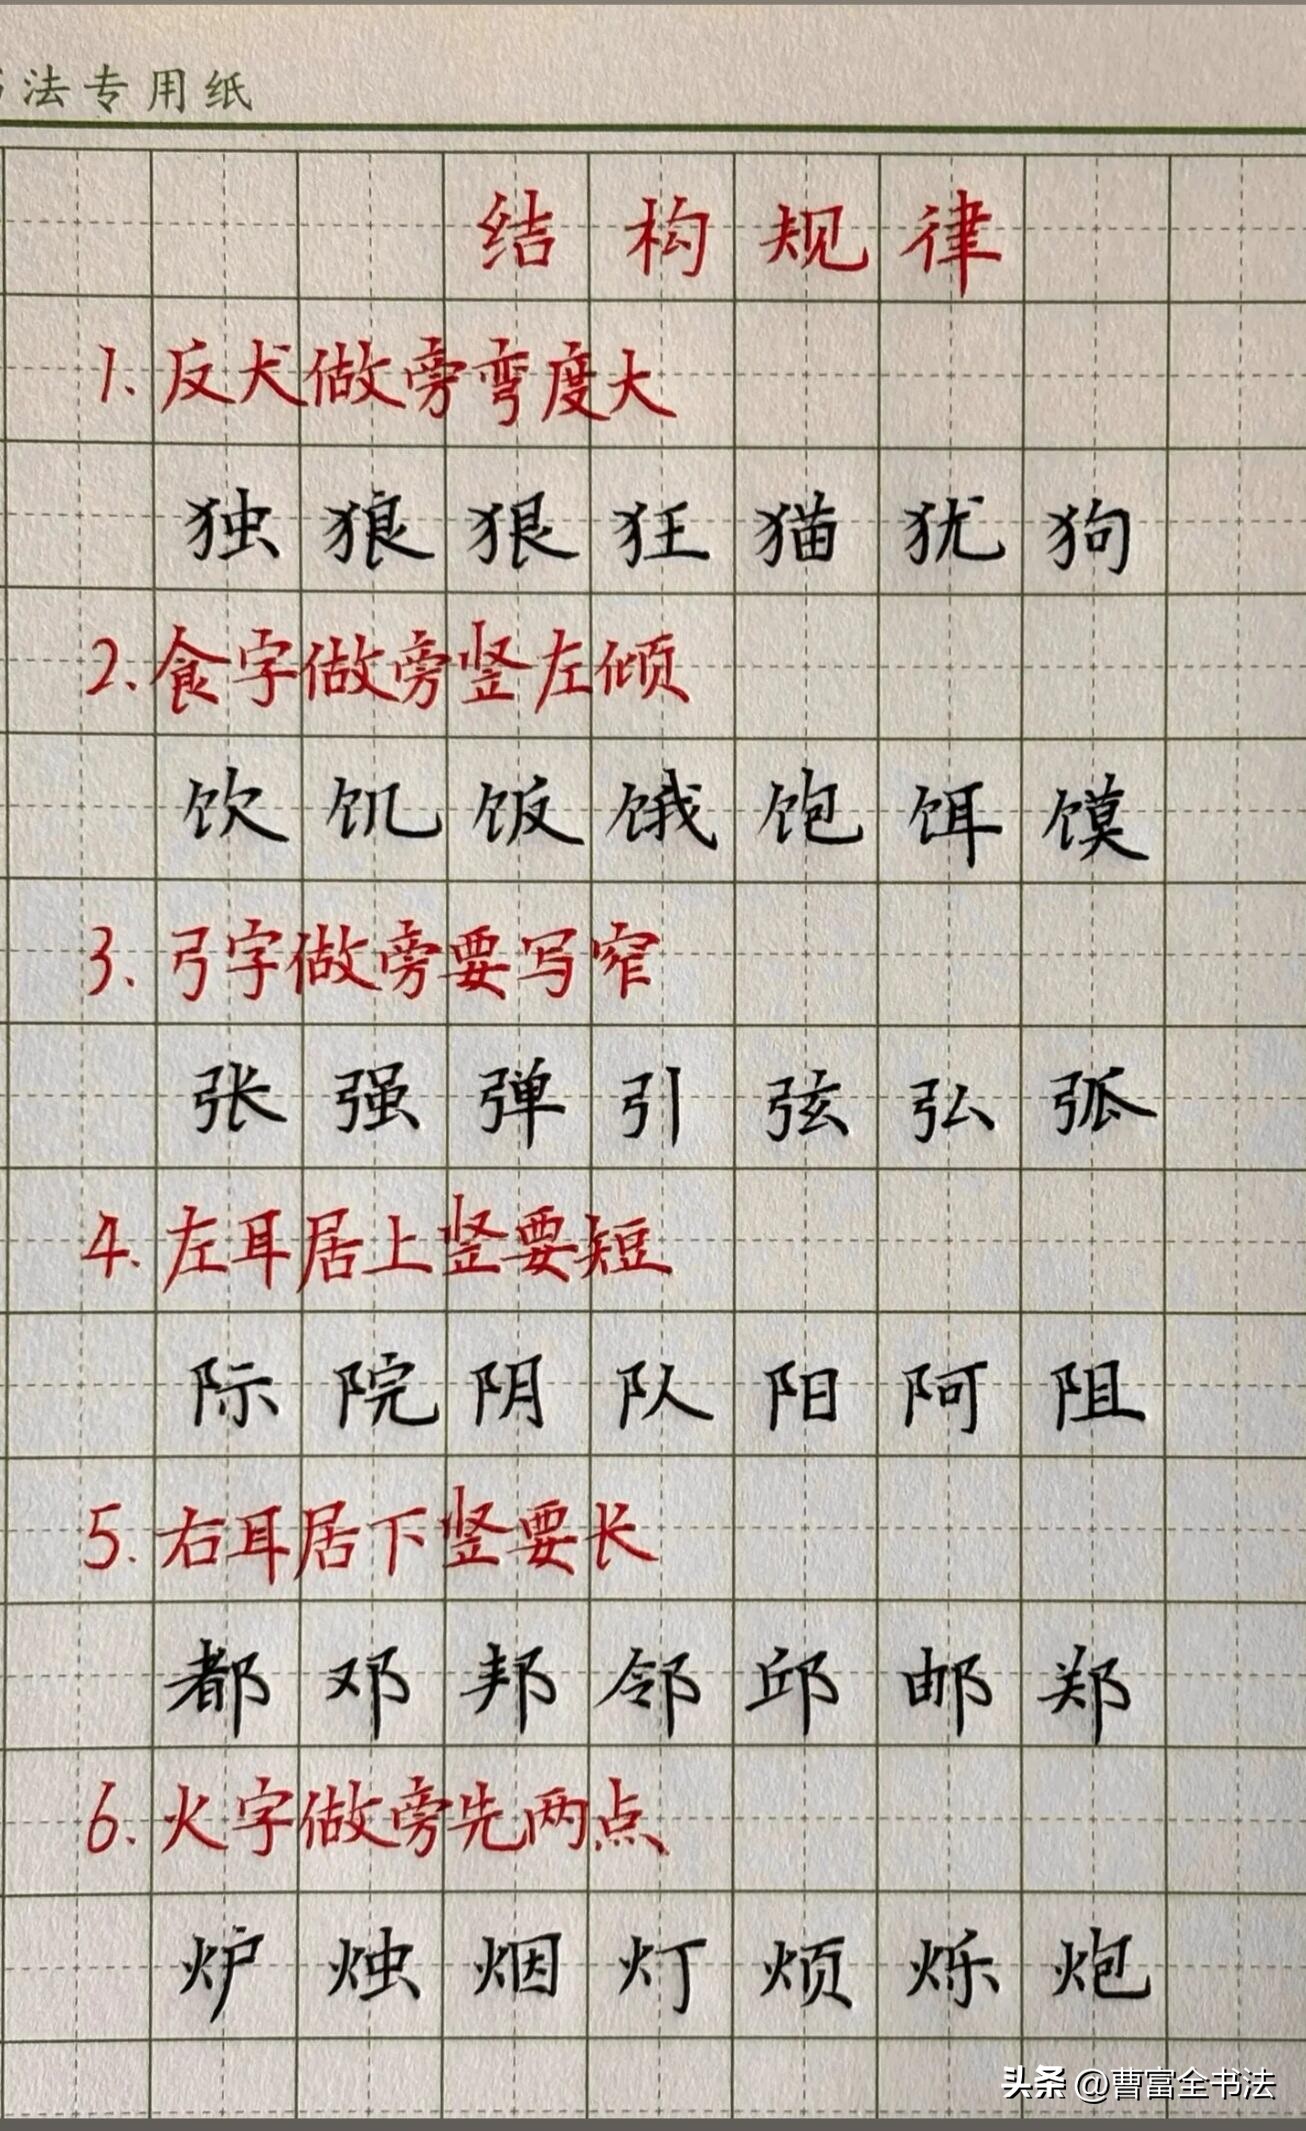 法专用纸
结构规律
1.反犬做旁弯度大
独狼狠狂猫犹狗
2.食字做旁竖左倾
饮饥饭饿饱饵馍
3.弓字做旁要写窄
张强弹引弦弘弧
4.左耳居上竖要短
际院阴队阳阿阻
5.右耳居下竖要长
都邓邦邻邱邮郑
6.火字做旁先两点
炉烛烟灯烦烁炮
头条 @曹富全书法